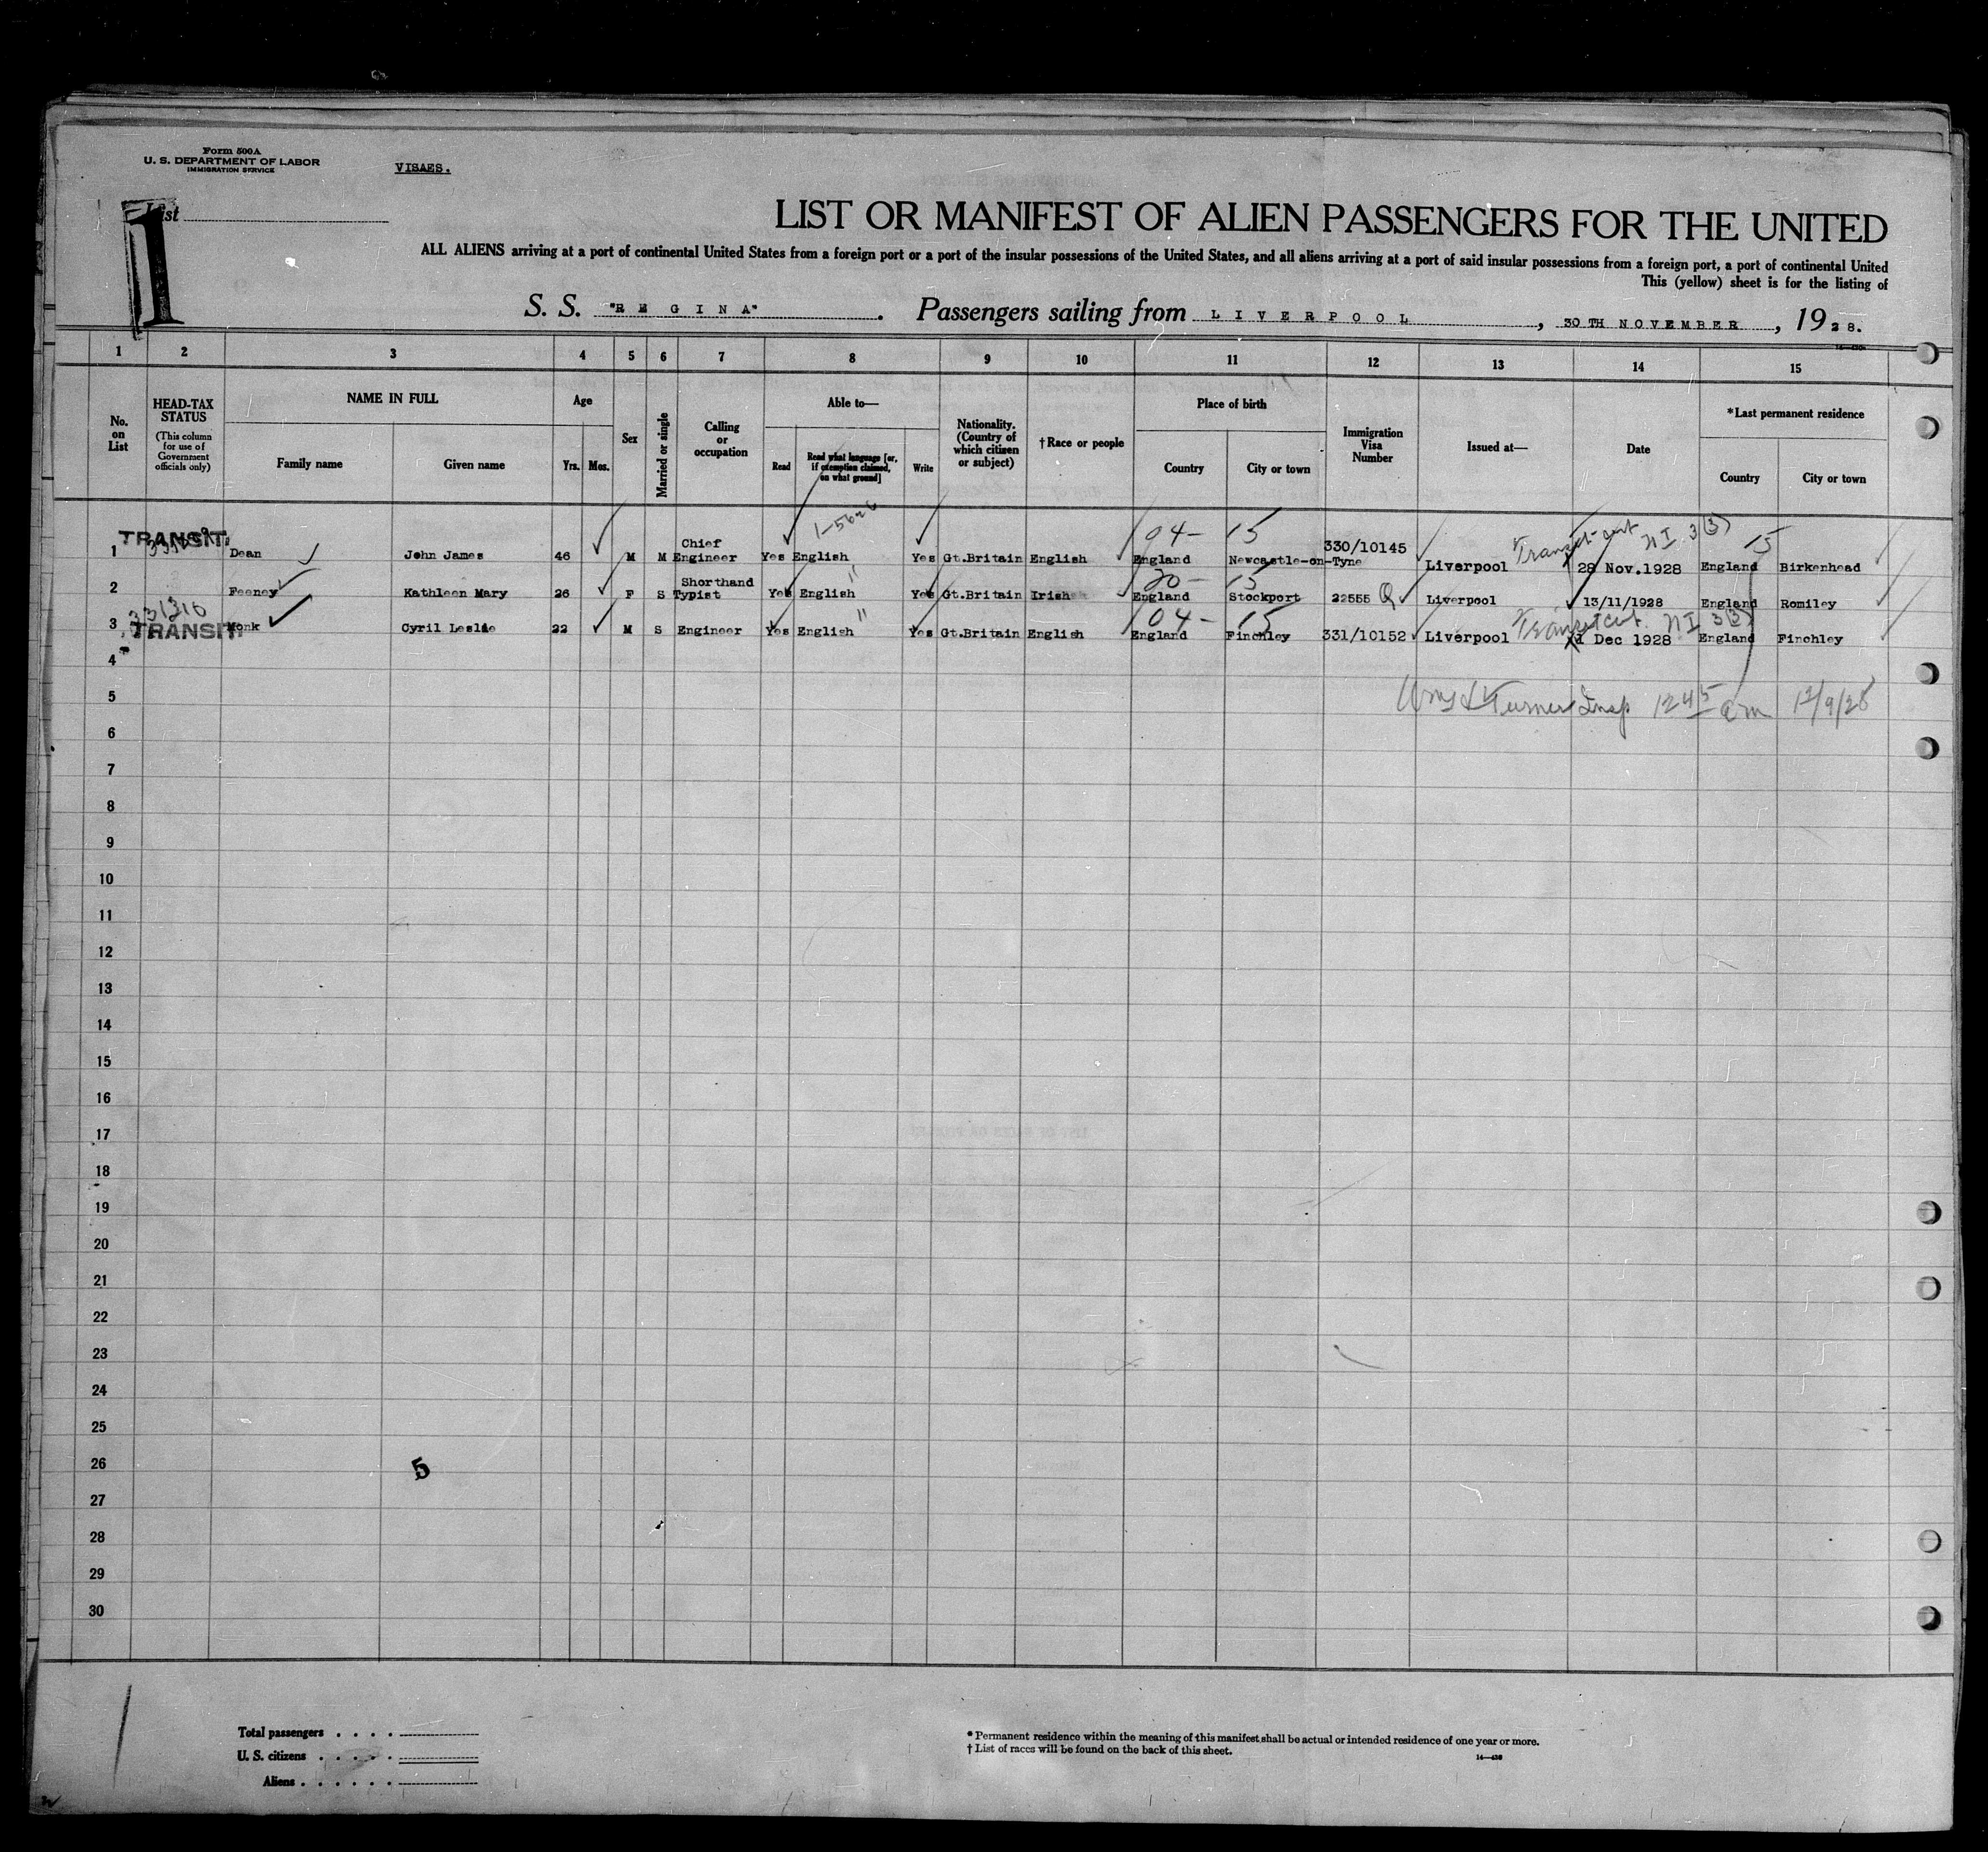 Form 500A
U. S. DEPARTMENT OF LABOR
IMMIGRATION SERVICE
VISAES.
List
1
LIST OR MANIFEST OF ALIEN PASSENGERS FOR THE UNITED
ALL ALIENS arriving at a port of continental United States from a foreign port or a port of the insular possessions of the United States, and all aliens arriving at a port of said insular possessions from a foreign port, a port of continental United
This (yellow) sheet is for the listing of
S. S. "REGINA". Passengers sailing from LIVERPOOL, 30TH NOVEMBER, 1928.
1 2 3 4 5 6 7 8 9 10 11 12 13 14 15
No. on List
HEAD-TAX STATUS (This column for use of Government officials only)
NAME IN FULL
Family name Given name
Age
Yrs. Mos.
Sex
Married or single
Calling or occupation
Able to—
Read
Read what language [or, if exemption claimed, on what ground]
Write
Nationality. (Country of which citizen or subject)
†Race or people
Place of birth
Country City or town
Immigration Visa Number
Issued at—
Date
*Last permanent residence
Country City or town
1-5626 04- 15 Transit cert NI 3(3) 15
1 TRANSIT. Dean John James 46 M M Chief Engineer Yes English Yes Gt.Britain English England Newcastle-on-Tyne 330/10145 Liverpool 28 Nov.1928 England Birkenhead
" 20- 15
2 Feeney Kathleen Mary 26 F S Shorthand Typist Yes English Yes Gt.Britain Irish England Stockport 22555 Q Liverpool 13/11/1928 England Romiley
331316 " 04- 15 Transit cert. NI 3(3)
3 TRANSIT Monk Cyril Leslie 22 M S Engineer Yes English Yes Gt.Britain English England Finchley 331/10152 Liverpool 1 Dec 1928 England Finchley
4
Turner Insp 1245 am 12/9/28
5
6
7
8
9
10
11
12
13
14
15
16
17
18
19
20
21
22
23
24
25
26
5
27
28
29
30
Total passengers . . . .
U. S. citizens . . . . .
Aliens . . . . . .
* Permanent residence within the meaning of this manifest shall be actual or intended residence of one year or more.
† List of races will be found on the back of this sheet.
14—430